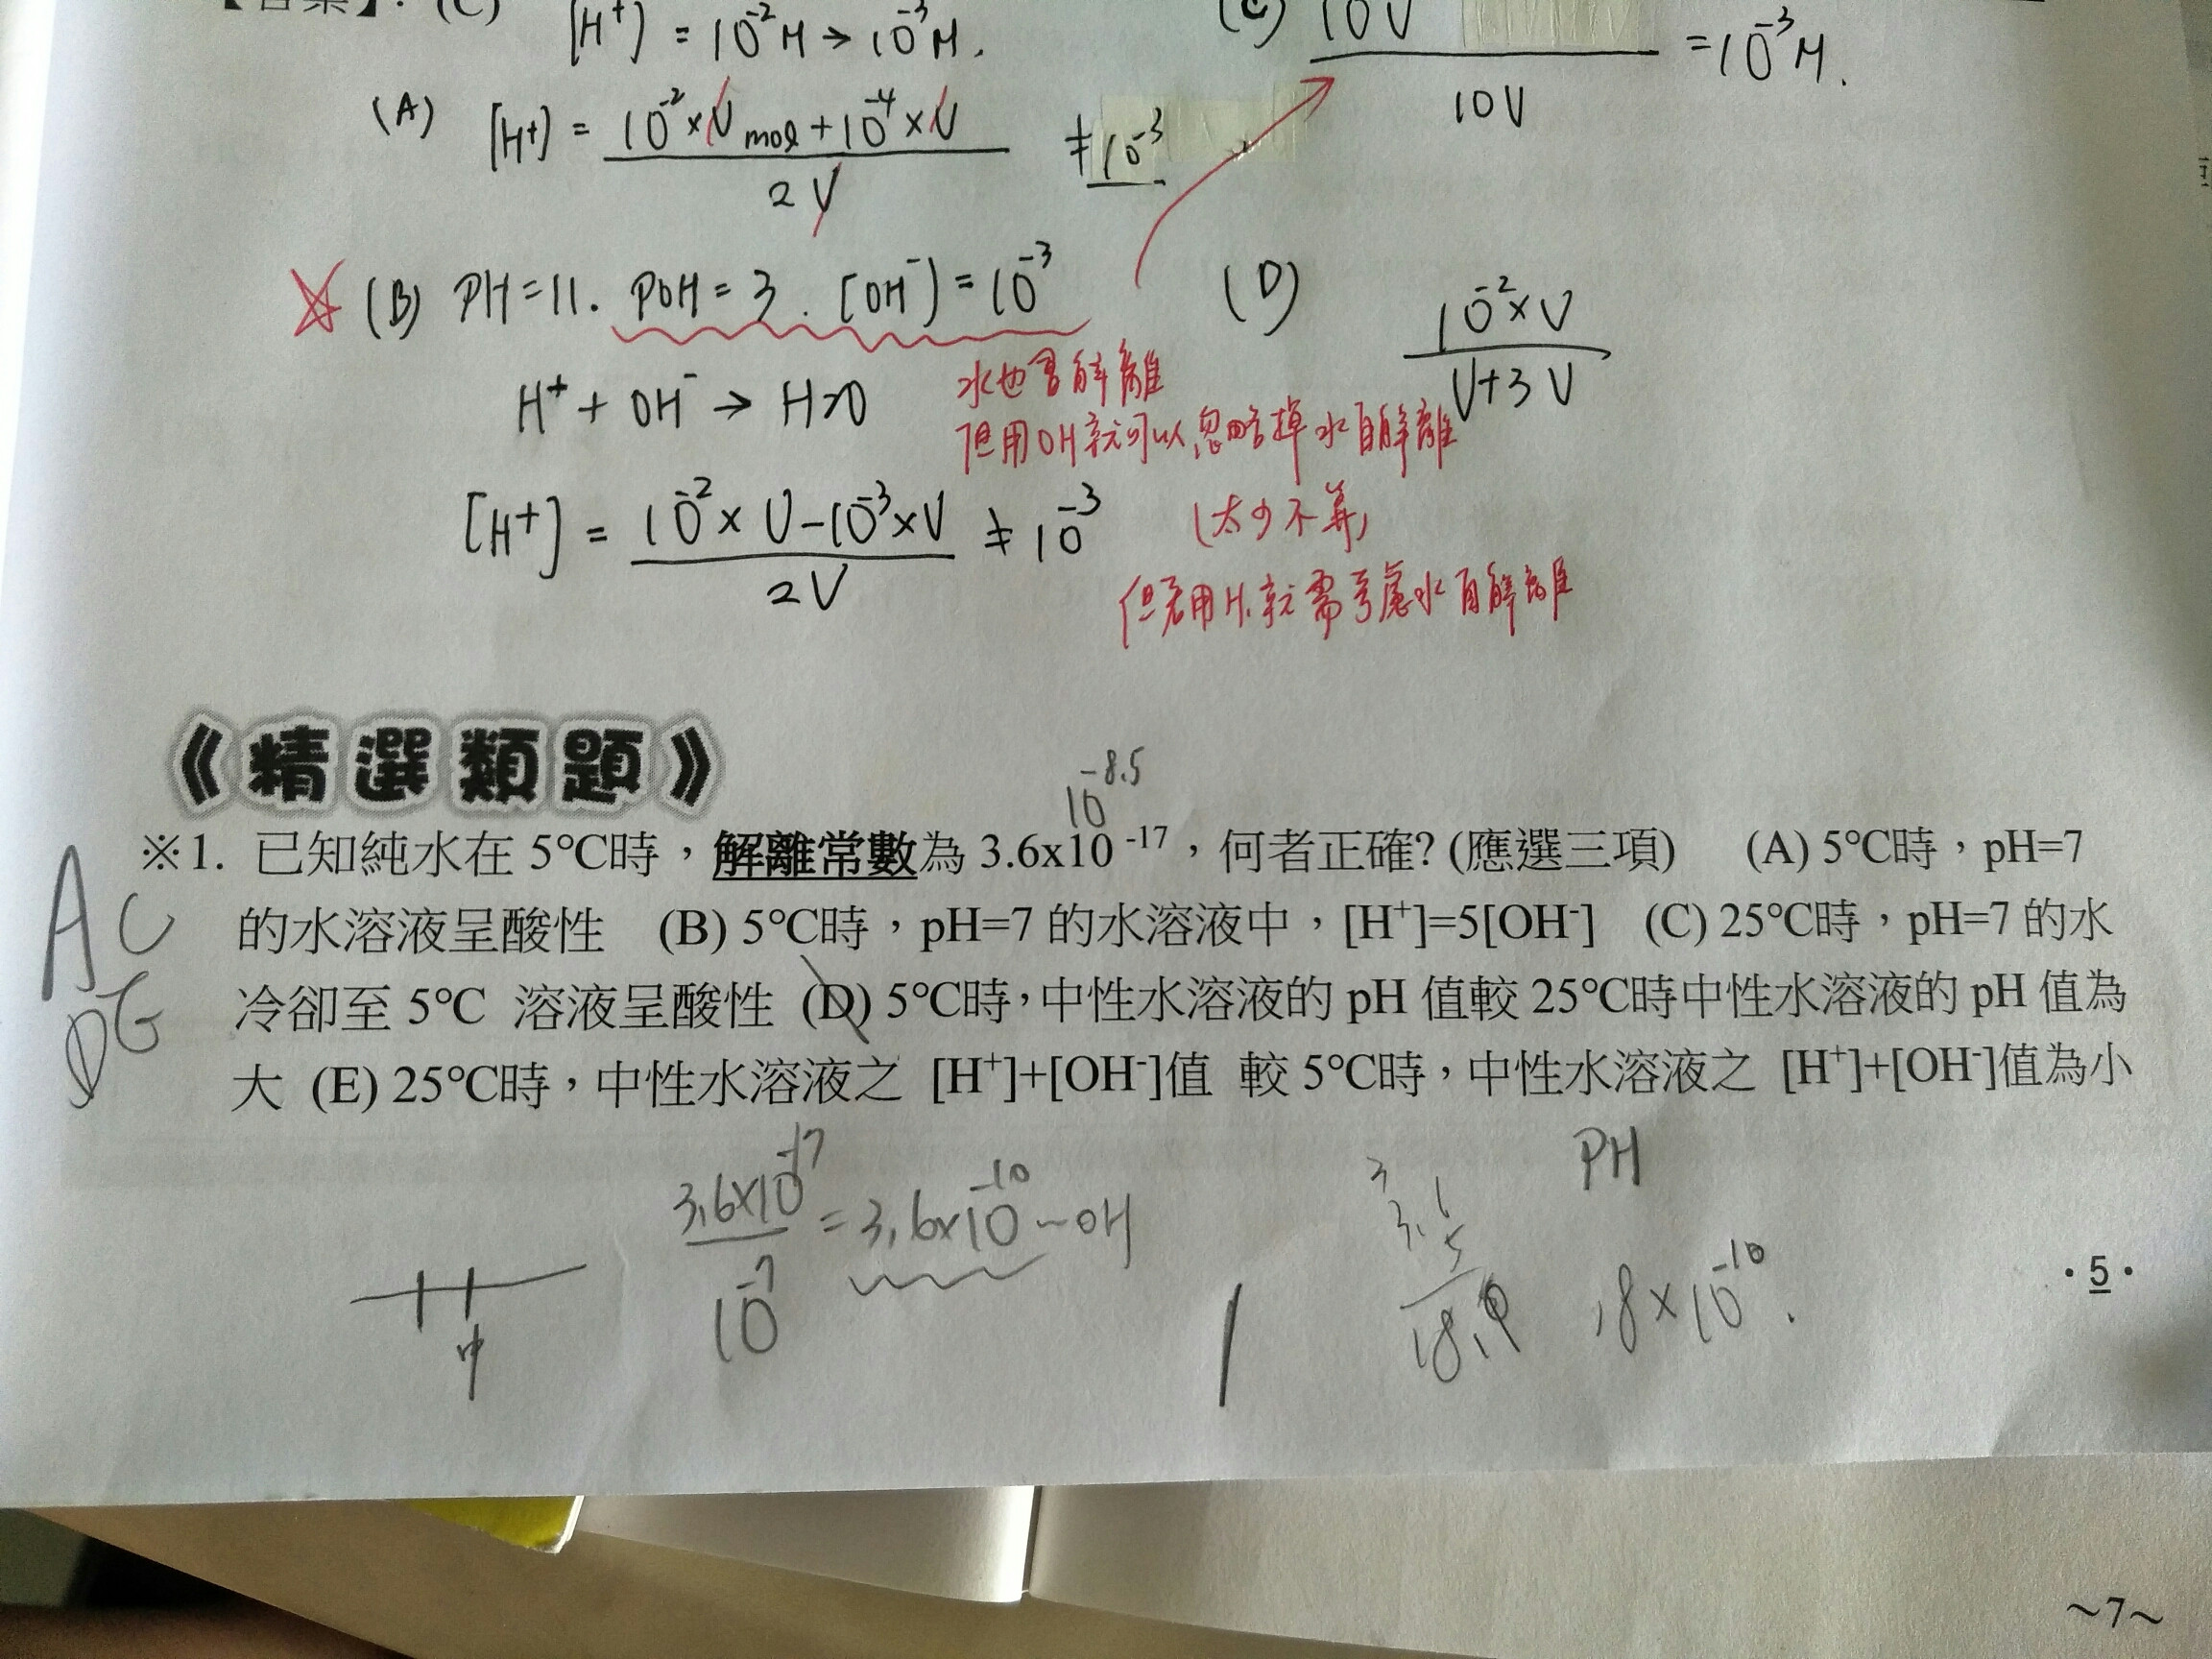 (C) [H⁺] = 10⁻²M → 10⁻³M.
(C) 10V / 10V = 10⁻³M.
(A) [H⁺] = 10⁻²×V mol + 10⁻⁴×V / 2V ≠ 10⁻³
(B) PH=11. POH=3. [OH⁻]=10⁻³
(D) 10⁻²×V / V+3V
H⁺ + OH⁻ → H₂O
水也會解離
但用OH就可以忽略掉水自解離
(太少不算)
[H⁺] = 10⁻²×V-10⁻³×V / 2V ≠ 10⁻³
但若用H⁺就需考慮水自解離
《精選類題》
10⁻⁸·⁵
※1. 已知純水在 5℃時，解離常數為 3.6x10 ⁻¹⁷，何者正確? (應選三項) (A) 5℃時，pH=7
的水溶液呈酸性 (B) 5℃時，pH=7 的水溶液中，[H⁺]=5[OH⁻] (C) 25℃時，pH=7 的水
冷卻至 5℃ 溶液呈酸性 (D) 5℃時，中性水溶液的 pH 值較 25℃時中性水溶液的 pH 值為
大 (E) 25℃時，中性水溶液之 [H⁺]+[OH⁻]值 較 5℃時，中性水溶液之 [H⁺]+[OH⁻]值為小
A C
D
3.6×10⁻¹⁷ / 10⁻⁷ = 3.6×10⁻¹⁰ ~OH
PH
中
3.6
5
18×10⁻¹⁰.
·5·
~7~